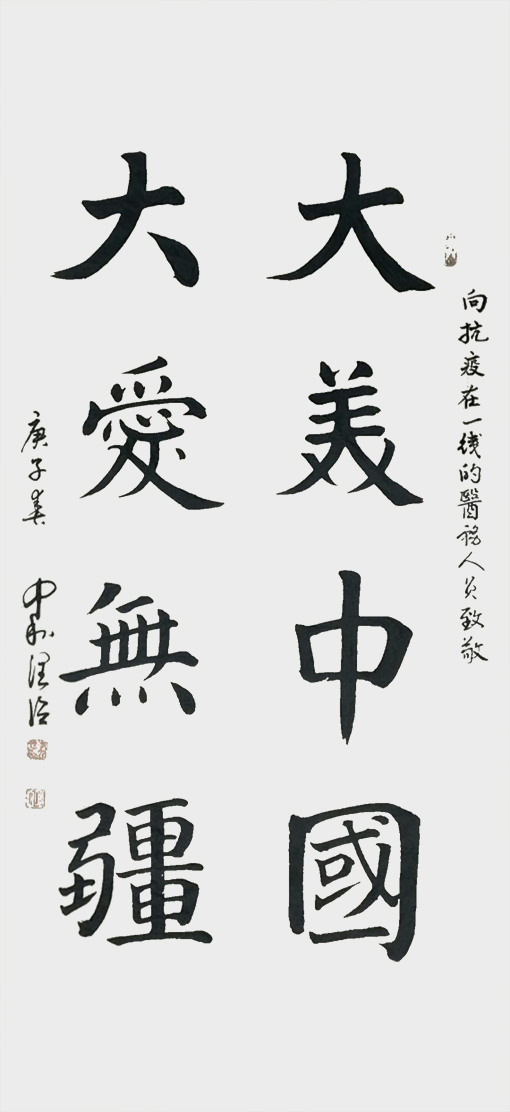 向抗疫在一线的醫務人员致敬
大美中國
大愛無疆
庚子春